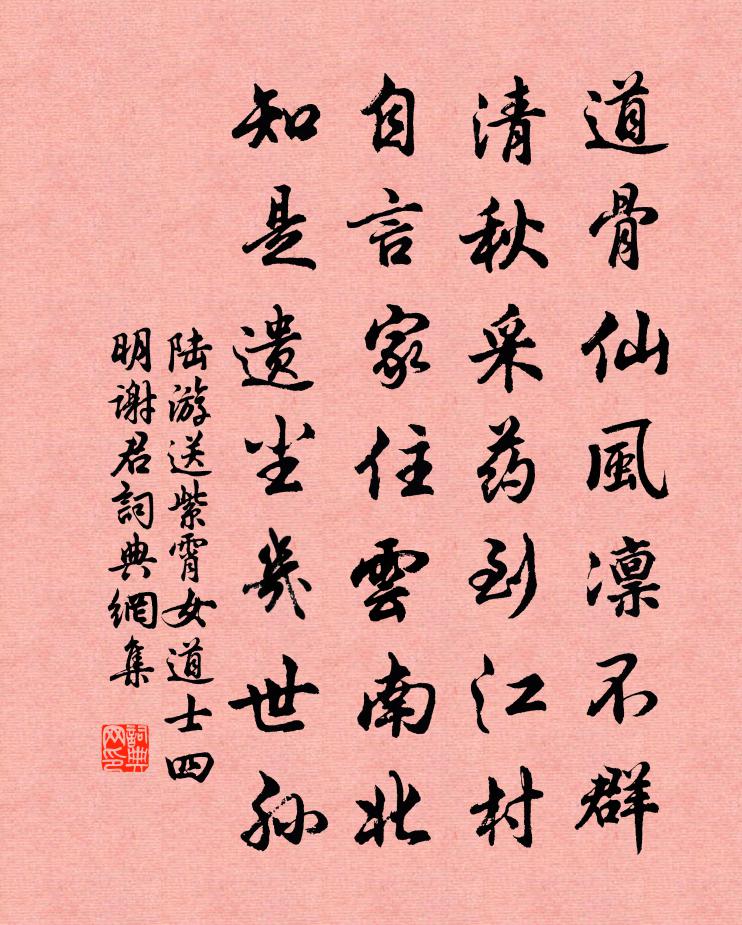 道骨仙風凛不群
清秋采药到江村
自言家住雲南北
知是遗尘幾世孙
陆游送紫霄女道士四
明谢君詞典網集
詞典
网印